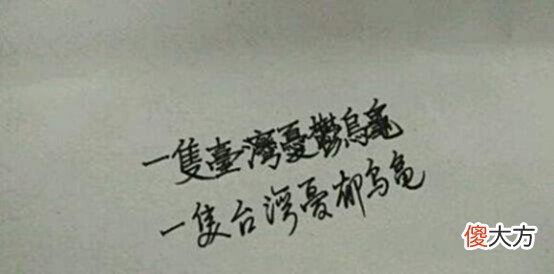 一隻臺灣憂鬱烏龜
一隻台湾憂郁乌龟
傻大方